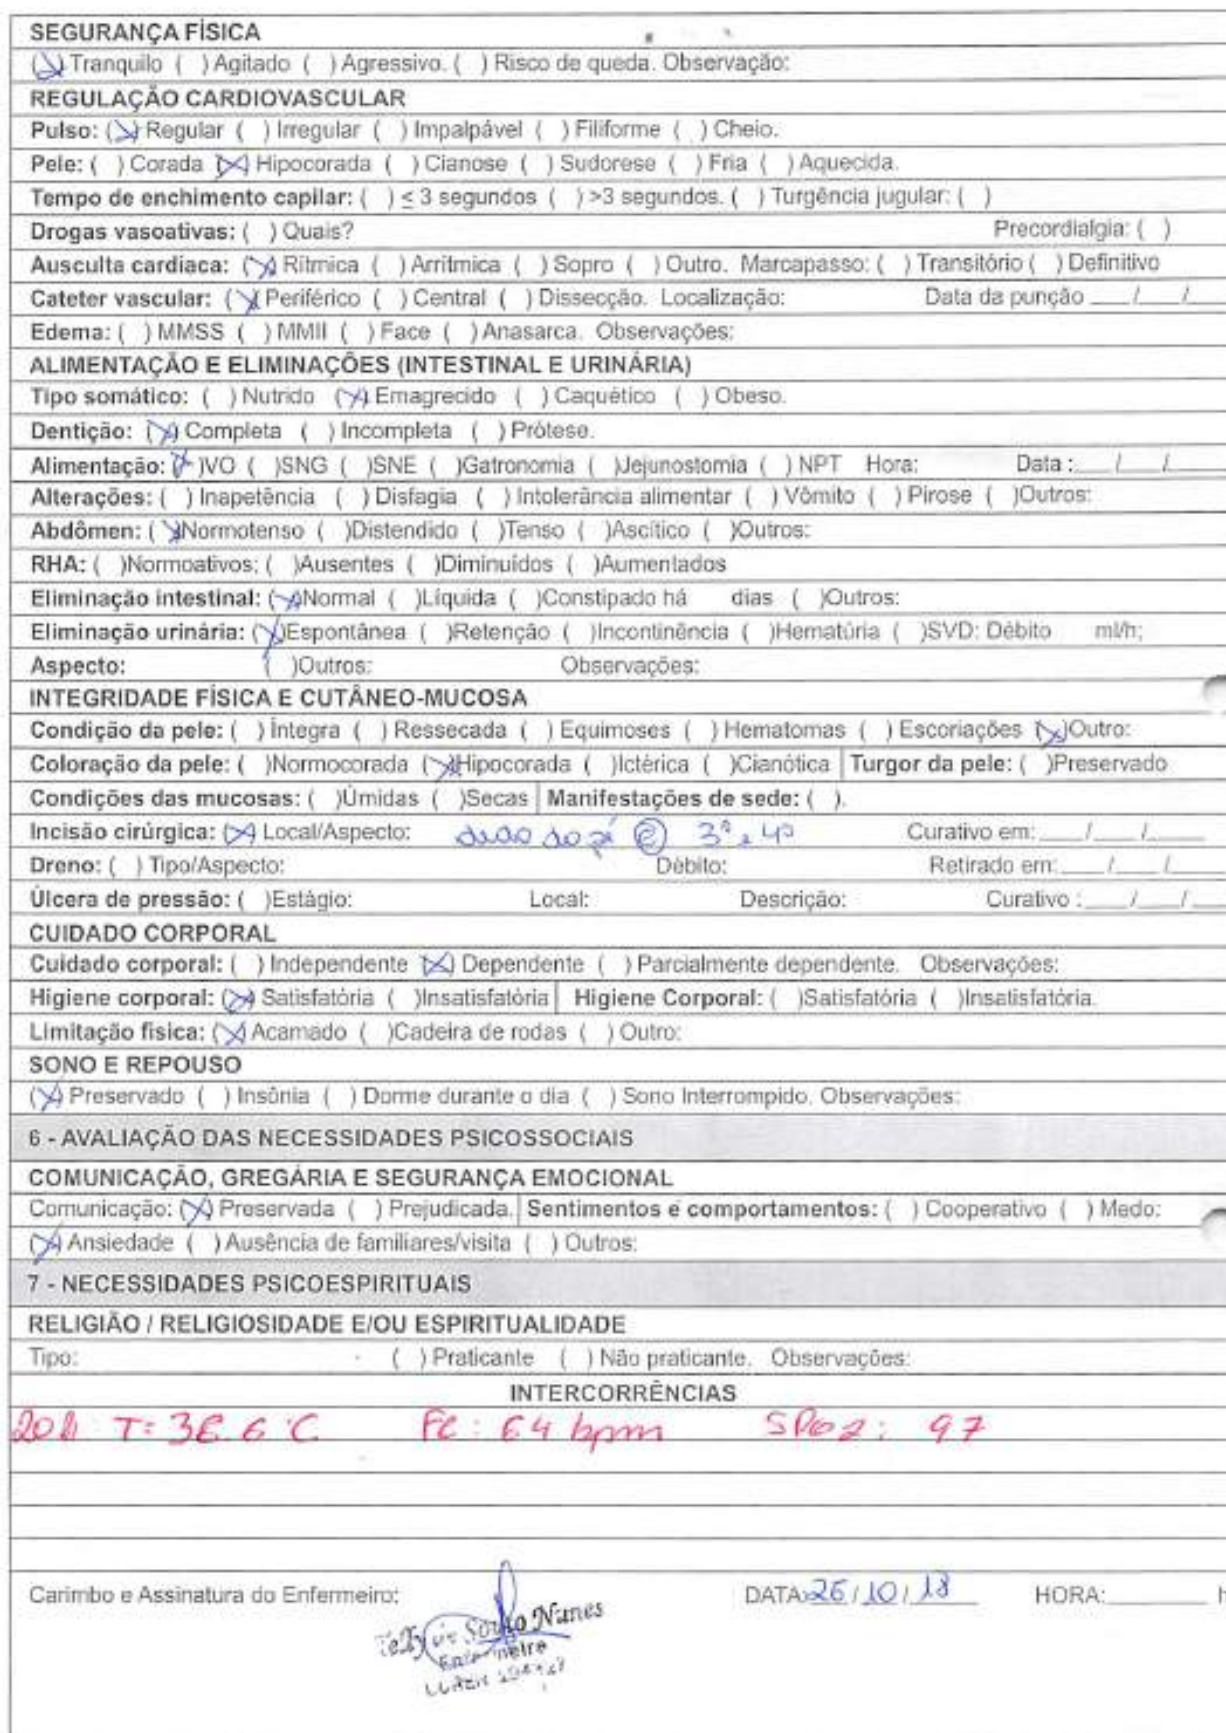 SEGURANÇA FÍSICA
(X) Tranquilo ( ) Agitado ( ) Agressivo. ( ) Risco de queda. Observação:
REGULAÇÃO CARDIOVASCULAR
Pulso: (X) Regular ( ) Irregular ( ) Impalpável ( ) Filiforme ( ) Cheio.
Pele: ( ) Corada (X) Hipocorada ( ) Cianose ( ) Sudorese ( ) Fria ( ) Aquecida.
Tempo de enchimento capilar: ( ) ≤ 3 segundos ( ) >3 segundos. ( ) Turgência jugular: ( )
Drogas vasoativas: ( ) Quais? Precordialgia: ( )
Ausculta cardíaca: (X) Rítmica ( ) Arrítmica ( ) Sopro ( ) Outro. Marcapasso: ( ) Transitório ( ) Definitivo
Cateter vascular: (X) Periférico ( ) Central ( ) Dissecção. Localização: Data da punção ___/___/___
Edema: ( ) MMSS ( ) MMII ( ) Face ( ) Anasarca. Observações:
ALIMENTAÇÃO E ELIMINAÇÕES (INTESTINAL E URINÁRIA)
Tipo somático: ( ) Nutrido (X) Emagrecido ( ) Caquético ( ) Obeso.
Dentição: (X) Completa ( ) Incompleta ( ) Prótese.
Alimentação: (X)VO ( )SNG ( )SNE ( )Gatronomia ( )Jejunostomia ( ) NPT Hora: Data : ___/___/___
Alterações: ( ) Inapetência ( ) Disfagia ( ) Intolerância alimentar ( ) Vômito ( ) Pirose ( )Outros:
Abdômen: (X)Normotenso ( )Distendido ( )Tenso ( )Ascítico ( )Outros:
RHA: ( )Normoativos; ( )Ausentes ( )Diminuídos ( )Aumentados
Eliminação intestinal: (X)Normal ( )Líquida ( )Constipado há dias ( )Outros:
Eliminação urinária: (X)Espontânea ( )Retenção ( )Incontinência ( )Hematúria ( )SVD: Débito ml/h;
Aspecto: ( )Outros: Observações:
INTEGRIDADE FÍSICA E CUTÂNEO-MUCOSA
Condição da pele: ( ) Íntegra ( ) Ressecada ( ) Equimoses ( ) Hematomas ( ) Escoriações (X)Outro:
Coloração da pele: ( )Normocorada (X)Hipocorada ( )Ictérica ( )Cianótica Turgor da pele: ( )Preservado
Condições das mucosas: ( )Úmidas ( )Secas Manifestações de sede: ( ).
Incisão cirúrgica: (X) Local/Aspecto: pé (E) 3º e 4º Curativo em: ___/___/___
Dreno: ( ) Tipo/Aspecto: Débito: Retirado em: ___/___/___
Úlcera de pressão: ( )Estágio: Local: Descrição: Curativo : ___/___/___
CUIDADO CORPORAL
Cuidado corporal: ( ) Independente (X) Dependente ( ) Parcialmente dependente. Observações:
Higiene corporal: (X) Satisfatória ( )Insatisfatória Higiene Corporal: ( )Satisfatória ( )Insatisfatória.
Limitação física: (X) Acamado ( )Cadeira de rodas ( ) Outro:
SONO E REPOUSO
(X) Preservado ( ) Insônia ( ) Dorme durante o dia ( ) Sono Interrompido. Observações:
6 - AVALIAÇÃO DAS NECESSIDADES PSICOSSOCIAIS
COMUNICAÇÃO, GREGÁRIA E SEGURANÇA EMOCIONAL
Comunicação: (X) Preservada ( ) Prejudicada. Sentimentos e comportamentos: ( ) Cooperativo ( ) Medo:
(X) Ansiedade ( ) Ausência de familiares/visita ( ) Outros:
7 - NECESSIDADES PSICOESPIRITUAIS
RELIGIÃO / RELIGIOSIDADE E/OU ESPIRITUALIDADE
Tipo: ( ) Praticante ( ) Não praticante. Observações:
INTERCORRÊNCIAS
20h T: 36.6°C FC: 64 bpm SPO2: 97
Carimbo e Assinatura do Enfermeiro: DATA: 26/10/18 HORA: ______ h
Nunes